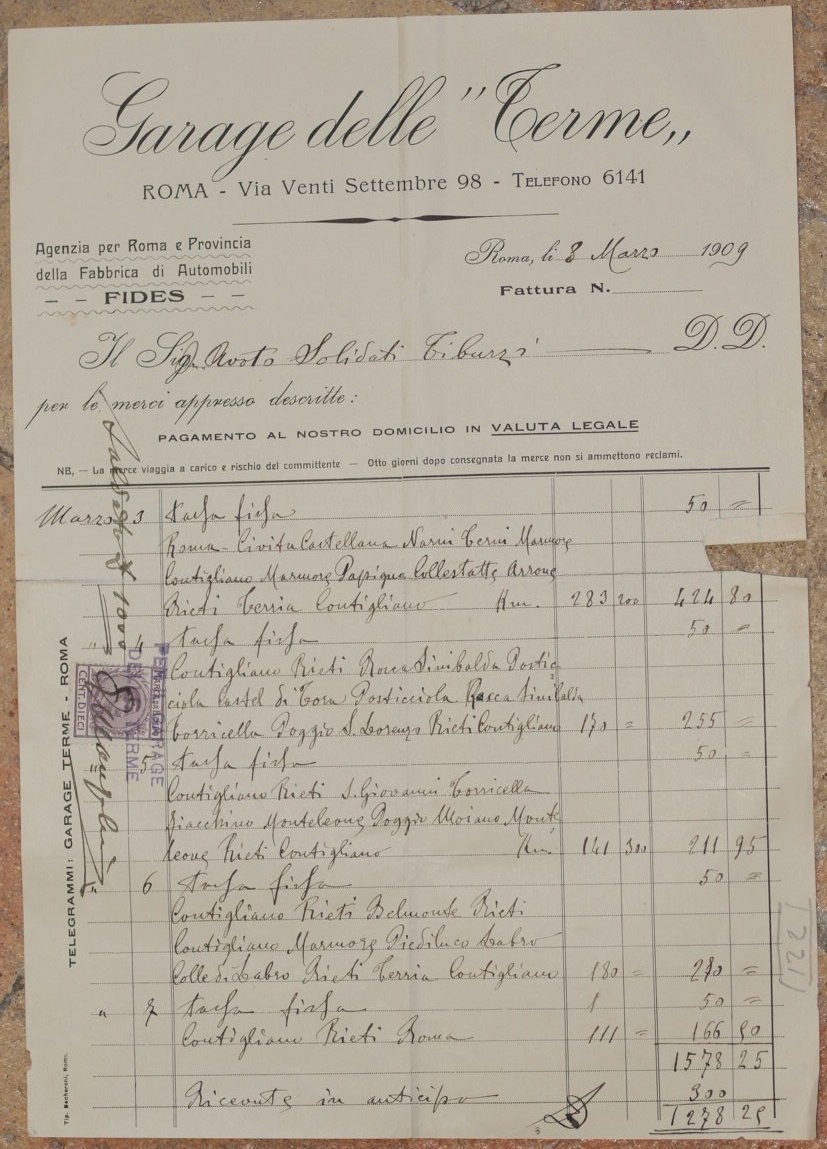 Garage delle "Terme„
ROMA - Via Venti Settembre 98 - TELEFONO 6141
Agenzia per Roma e Provincia
della Fabbrica di Automobili
- - FIDES - -
Roma, li 8 Marzo 1909
Fattura N.
Il Sig. Avoto Solidati Tiburzi D. D.
per le merci appresso descritte:
PAGAMENTO AL NOSTRO DOMICILIO IN VALUTA LEGALE
NB. — La merce viaggia a carico e rischio del committente — Otto giorni dopo consegnata la merce non si ammettono reclami.
Marzo 3 tassa fissa 50 =
Roma - Civita Castellana Narni Terni Marmore
Contigliano Marmore Papigno Collestatte Arrone
Rieti Terria Contigliano Km. 283 200 424 80
" 4 tassa fissa 50 =
Contigliano Rieti Rocca Sinibalda Postic
ciola Castel di Tora Posticciola Rocca Sinibalda
Torricella Poggio S. Lorenzo Rieti Contigliano 170 = 255 =
5 tassa fissa 50 =
Contigliano Rieti S. Giovanni Torricella
Monteleone Poggio Moiano Monte
leone Rieti Contigliano Km 141 300 211 95
" 6 tassa fissa 50 =
Contigliano Rieti Belmonte Rieti
Contigliano Marmore Piediluco Labro
Colle di Labro Rieti Terria Contigliano 180 = 270 =
" 7 tassa fissa 50 =
Contigliano Rieti Roma 111 = 166 50
1578 25
Ricevute in anticipo 300
1278 25
TELEGRAMMI: GARAGE TERME - ROMA
Tip. Becheroni, Roma.
CENT. DIECI
PEL GARAGE
DELLE TERME
1221